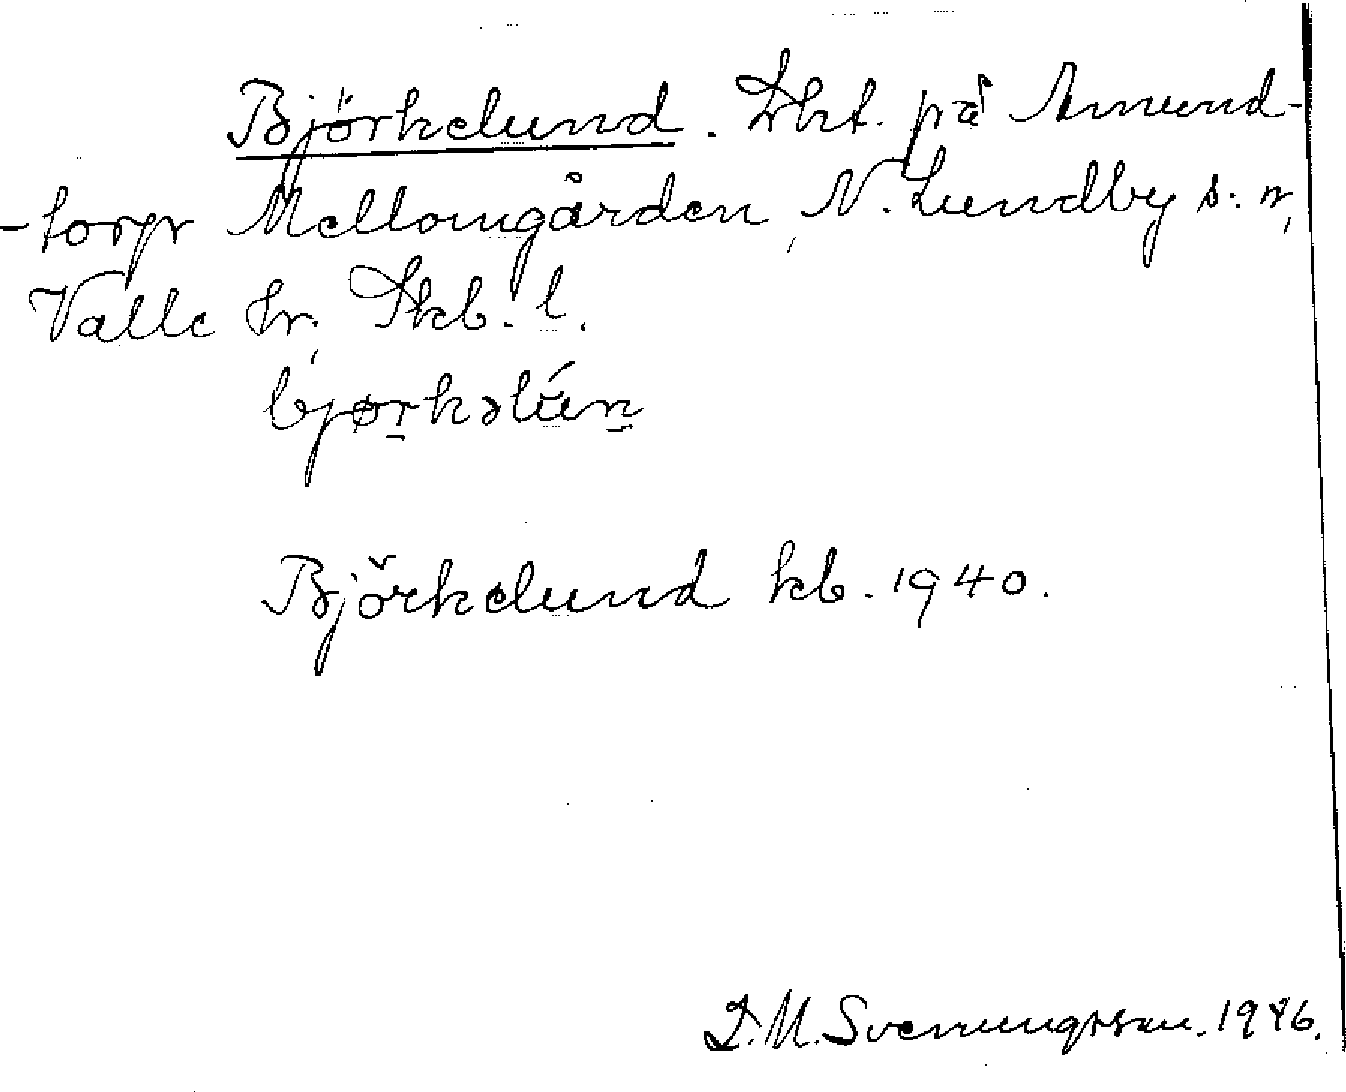 Björkelund. Lht. på Amund-
-torps Mellomgården, N. Lundby s:n,
Valle hr, Skb. l.
bjørkəlún
Björkelund kb. 1940.
D.M. Svenungsson. 1946.